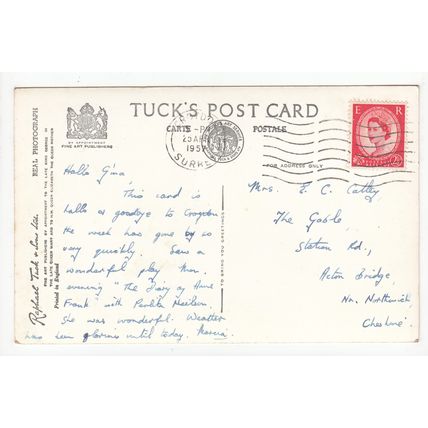 TUCK'S POST CARD
CARTE POSTALE
BY APPOINTMENT
FINE ART PUBLISHERS
FOR ADDRESS ONLY
E R
SURREY
REAL PHOTOGRAPH
Raphael Tuck & Sons Ltd.
FINE ART PUBLISHERS BY APPOINTMENT TO THE LATE KING GEORGE VI
THE LATE QUEEN MARY AND TO H.M. QUEEN ELIZABETH THE QUEEN MOTHER
Printed in England
TO BRING YOU GREETINGS
Hallo G'ma,
This card is
hallo & goodbye to Croydon.
The week has gone by so
very quickly. Saw a
wonderful play Mon.
evening "The Diary of Anne
Frank" with Perlita Neilson.
She was wonderful. Weather
has been glorious until today. Marcia
Mrs. E. C. Catley,
The Gable,
Station Rd.,
Acton Bridge,
Nr. Northwich,
Cheshire.